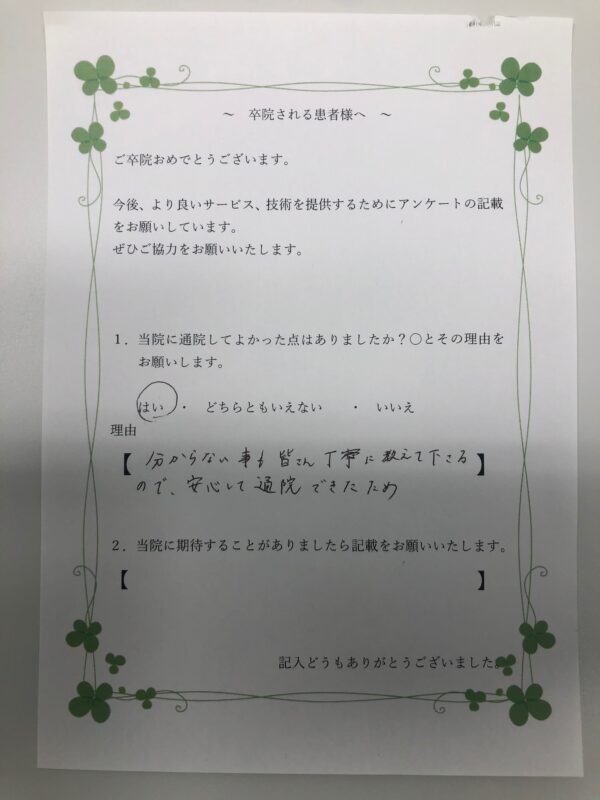 ～　卒院される患者様へ　～
ご卒院おめでとうございます。
今後、より良いサービス、技術を提供するためにアンケートの記載
をお願いしています。
ぜひご協力をお願いいたします。
１．当院に通院してよかった点はありましたか？〇とその理由を
お願いします。
はい　・　どちらともいえない　・　いいえ
理由
【 分からない事も皆さん丁寧に教えて下さる 】
ので、安心して通院できたため
２．当院に期待することがありましたら記載をお願いいたします。
【　】
記入どうもありがとうございました。